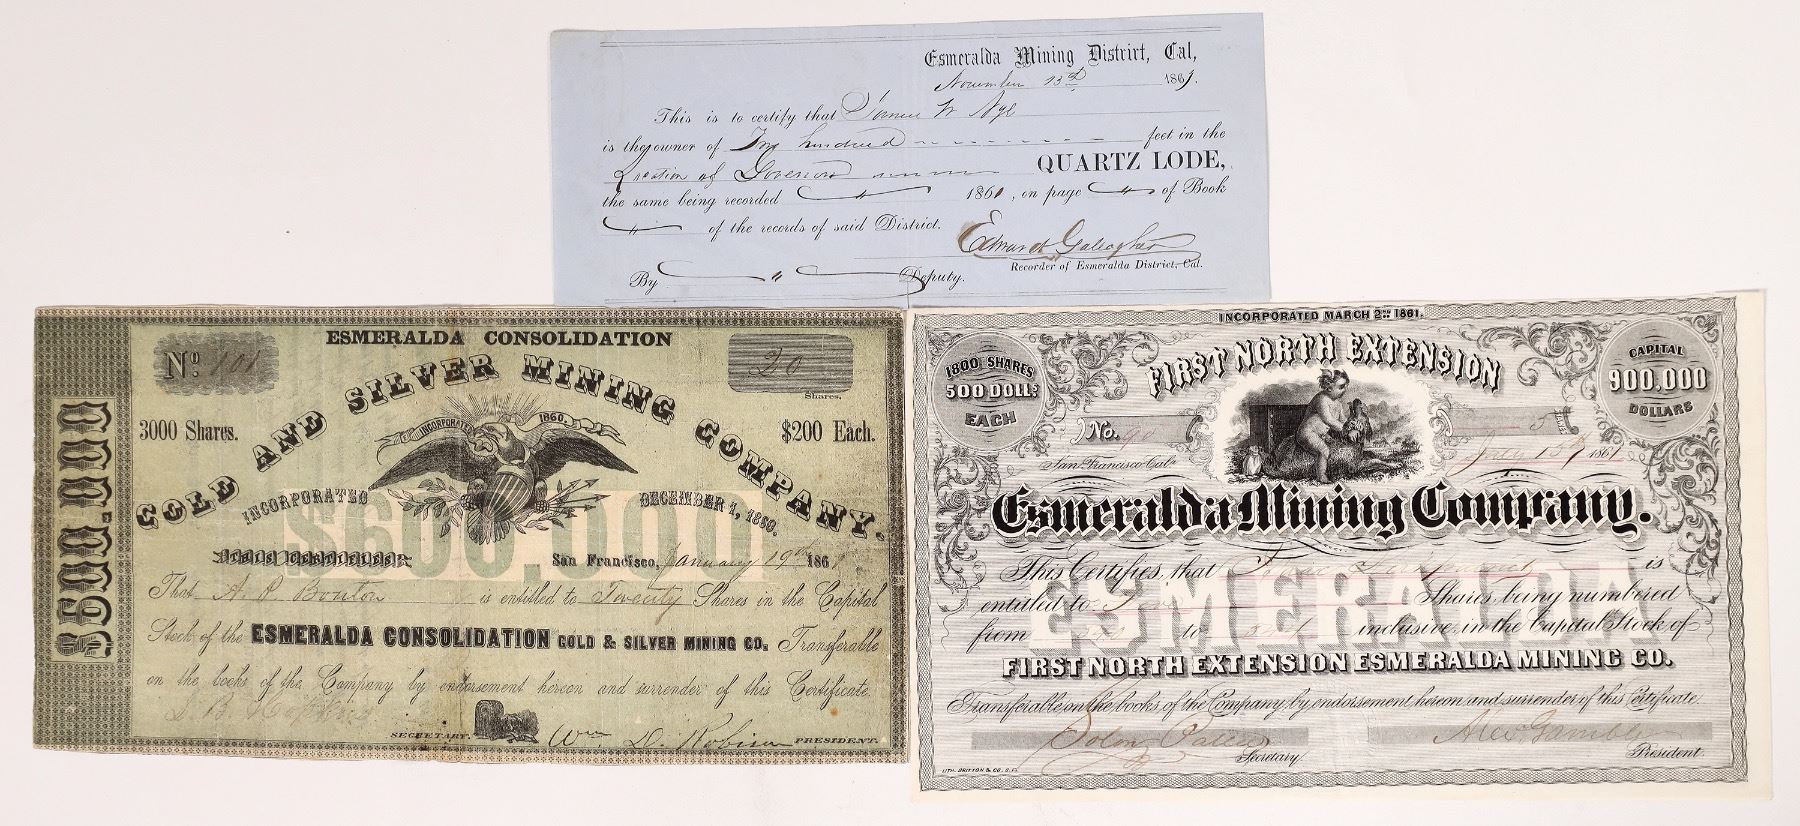 Esmeralda Mining District, Cal,
November 13th 1861.
This is to certify that James W Nye
is the owner of Two hundred feet in the
Location of Governor QUARTZ LODE,
the same being recorded " 1861, on page " of Book
" of the records of said District.
Edward Gallagher
Recorder of Esmeralda District, Cal.
By " Deputy.
$600.000
No. 101
ESMERALDA CONSOLIDATION
20
Shares.
3000 Shares.
GOLD AND SILVER MINING COMPANY.
$200 Each.
INCORPORATED 1860.
INCORPORATED DECEMBER 1, 1859.
$600,000
San Francisco, January 19th 186
That A. P. Bouton is entitled to Twenty Shares in the Capital
Stock of the ESMERALDA CONSOLIDATION GOLD & SILVER MINING CO. Transferable
on the books of the Company by endorsement hereon and surrender of this Certificate.
SECRETARY. Wm D. Robison PRESIDENT.
INCORPORATED MARCH 2ND 1861.
1800 SHARES
500 DOLLS
EACH
FIRST NORTH EXTENSION
CAPITAL
900,000
DOLLARS
No. 90 5
San Francisco Cal. 1861
Esmeralda Mining Company.
ESMERALDA
This Certifies, that is
entitled to Shares being numbered
from to inclusive, in the Capital Stock of
FIRST NORTH EXTENSION ESMERALDA MINING CO.
Transferable on the books of the Company, by endorsement hereon and surrender of this Certificate.
Alex Gamble
Secretary. President.
LITH. BRITTON & CO. S.F.